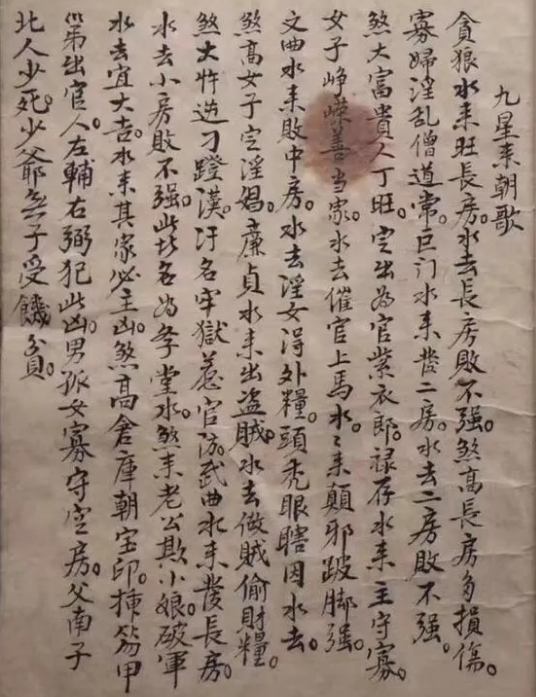 九星来朝歌
貪狼水来旺長房。水去長房敗不强。煞高長房多損傷。
寡婦淫乱僧道常。巨门水来發二房。水去二房敗不强。
煞大富貴人丁旺。定出為官紫衣郎。禄存水来主守寡。
女子崢嶸善当家。水去催官上馬水。〻来顛邪跛脚强。
文曲水来敗中房。水去淫女得外糧。頭禿眼瞎因水去。
煞高女子定淫娼。廉貞水来出盗賊。水去做賊偷財糧。
煞大忤逆刁蹬漢。汙名牢獄惹官防。武曲水来發長房。
水去小房敗不强。此名為孝堂水。煞来老公欺小娘。破軍
水去宜大吉。水来其家必主凶。煞高倉庫朝宝印。揷笏甲
弟出官人。左輔右弼犯此凶。男孤女寡守空房。父南子
北人少死。少爺無子受饑貧。